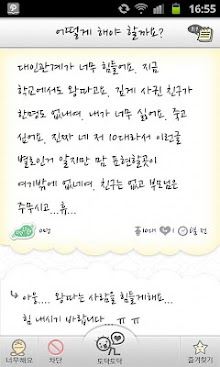 16:55
어떻게 해야 할까요?
대인관계가 너무 힘들어요. 지금
학교에서도 왕따고요. 길게 사귄 친구가
한명도 없네여. 내가 너무 싫어요. 죽고
싶어요. 진짜 네 저 10대라서 이런글
별로인거 알지만 맘 표현할곳이
여기밖에 없네여. 친구는 없고 부모님은
주무시고...휴...
10대
아웅.... 왕따는 사람을 힘들게해요...
힘 내시기 바랍니다 ㅠㅠ
너무해요
차단
토닥토닥
즐겨찾기